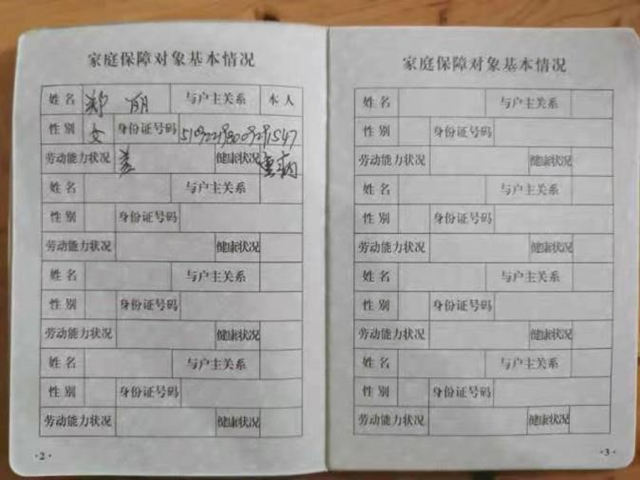 家庭保障对象基本情况
姓名 郑丽 与户主关系 本人
性别 女 身份证号码
劳动能力状况 差 健康状况 重病
姓名 与户主关系
性别 身份证号码
劳动能力状况 健康状况
姓名 与户主关系
性别 身份证号码
劳动能力状况 健康状况
姓名 与户主关系
性别 身份证号码
劳动能力状况 健康状况
·2·
家庭保障对象基本情况
姓名 与户主关系
性别 身份证号码
劳动能力状况 健康状况
姓名 与户主关系
性别 身份证号码
劳动能力状况 健康状况
姓名 与户主关系
性别 身份证号码
劳动能力状况 健康状况
姓名 与户主关系
性别 身份证号码
劳动能力状况 健康状况
·3·